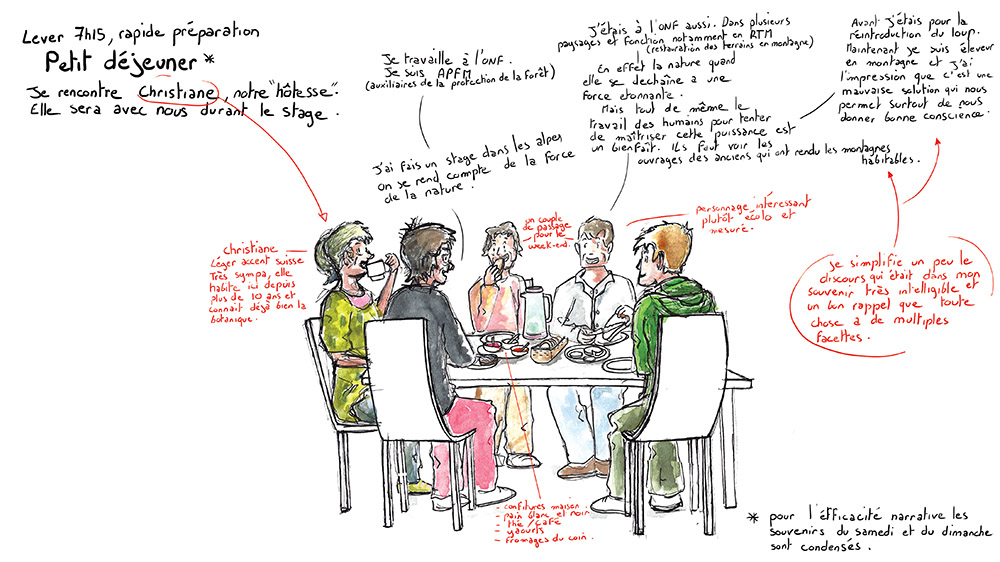 Lever 7h15, rapide préparation
Petit déjeuner *
Je rencontre Christiane, notre "hôtesse".
Elle sera avec nous durant le stage.
Je travaille à l'ONF.
Je suis APFM
(auxiliaires de la protection de la forêt)
J'ai fais un stage dans les alpes
on se rend compte de la force
de la nature.
J'étais à l'ONF aussi. Dans plusieurs
paysages et fonction notamment en RTM
(restauration des terrains en montagne)
En effet la nature quand
elle se dechaîne a une
force etonnante.
Mais tout de même le
travail des humains pour tenter
de maîtriser cette puissance est
un bienfait. Ils faut voir les
ouvrages des anciens qui ont rendu les montagnes
habitables.
Avant j'étais pour la
réintroduction du loup.
Maintenant je suis éleveur
en montagne et j'ai
l'impression que c'est une
mauvaise solution qui nous
permet surtout de nous
donner bonne conscience.
christiane
Léger accent suisse
Très sympa, elle
habite ici depuis
plus de 10 ans et
connait déjà bien la
botanique.
un couple
de passage
pour le
week-end.
personnage intéressant
plutôt écolo et
mesuré.
Je simplifie un peu le
discours qui était dans mon
souvenir très intelligible et
un bon rappel que toute
chose a de multiples
facettes.
- confitures maison.
- pain blanc et noir
- thé / café
- yaourts
- fromages du coin.
* pour l'éfficacité narrative les
souvenirs du samedi et du dimanche
sont condensés.